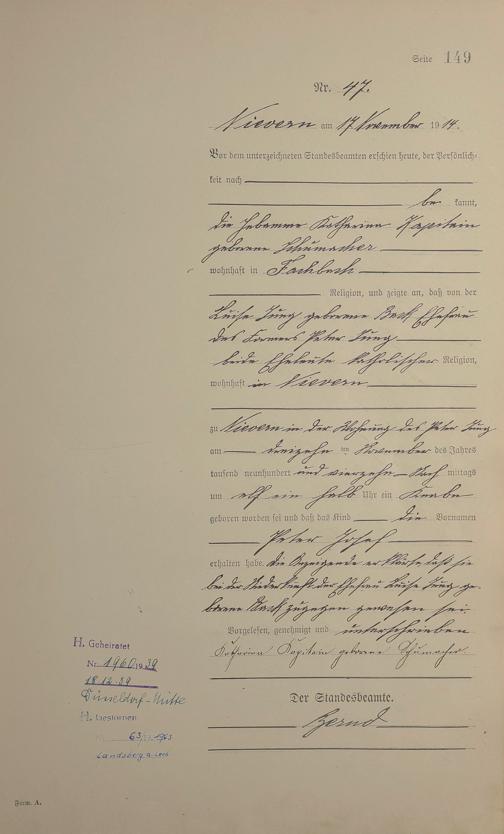 Seite 149
Nr. 47.
Nievern am 17 November 1914.
Vor dem unterzeichneten Standesbeamten erschien heute, der Persönlich-
keit nach
be kannt,
die Hebamme Katharina Kapitein
geborene Schumacher
wohnhaft in Fachbach
Religion, und zeigte an, daß von der
Luise Jung geborene Back Ehefrau
des Formers Peter Jung
beide Eheleute katholischer Religion,
wohnhaft in Nievern
zu Nievern in der Wohnung des Peter Jung
am dreizehn ten November des Jahres
tausend neunhundert und vierzehn Nach mittags
um elf ein halb Uhr ein Knabe
geboren worden sei und daß das Kind die Vornamen
Peter Josef
erhalten habe. Die Anzeigende erklärte, daß sie
bei der Niederkunft der Ehefrau Luise Jung ge-
borene Back zugegen gewesen sei.
Vorgelesen, genehmigt und unterschrieben
Katharina Kapitein geborene Schumacher
Der Standesbeamte.
H. Geheiratet
Nr. 1960/1939
18.12.39
Düsseldorf-Mitte
H. Gestorben
63/1963
Landsberg a. Lech
Form. A.